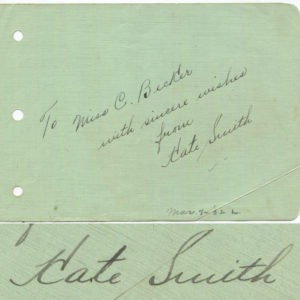 To Miss C. Becker
with sincere wishes
from
Kate Smith
Kate Smith